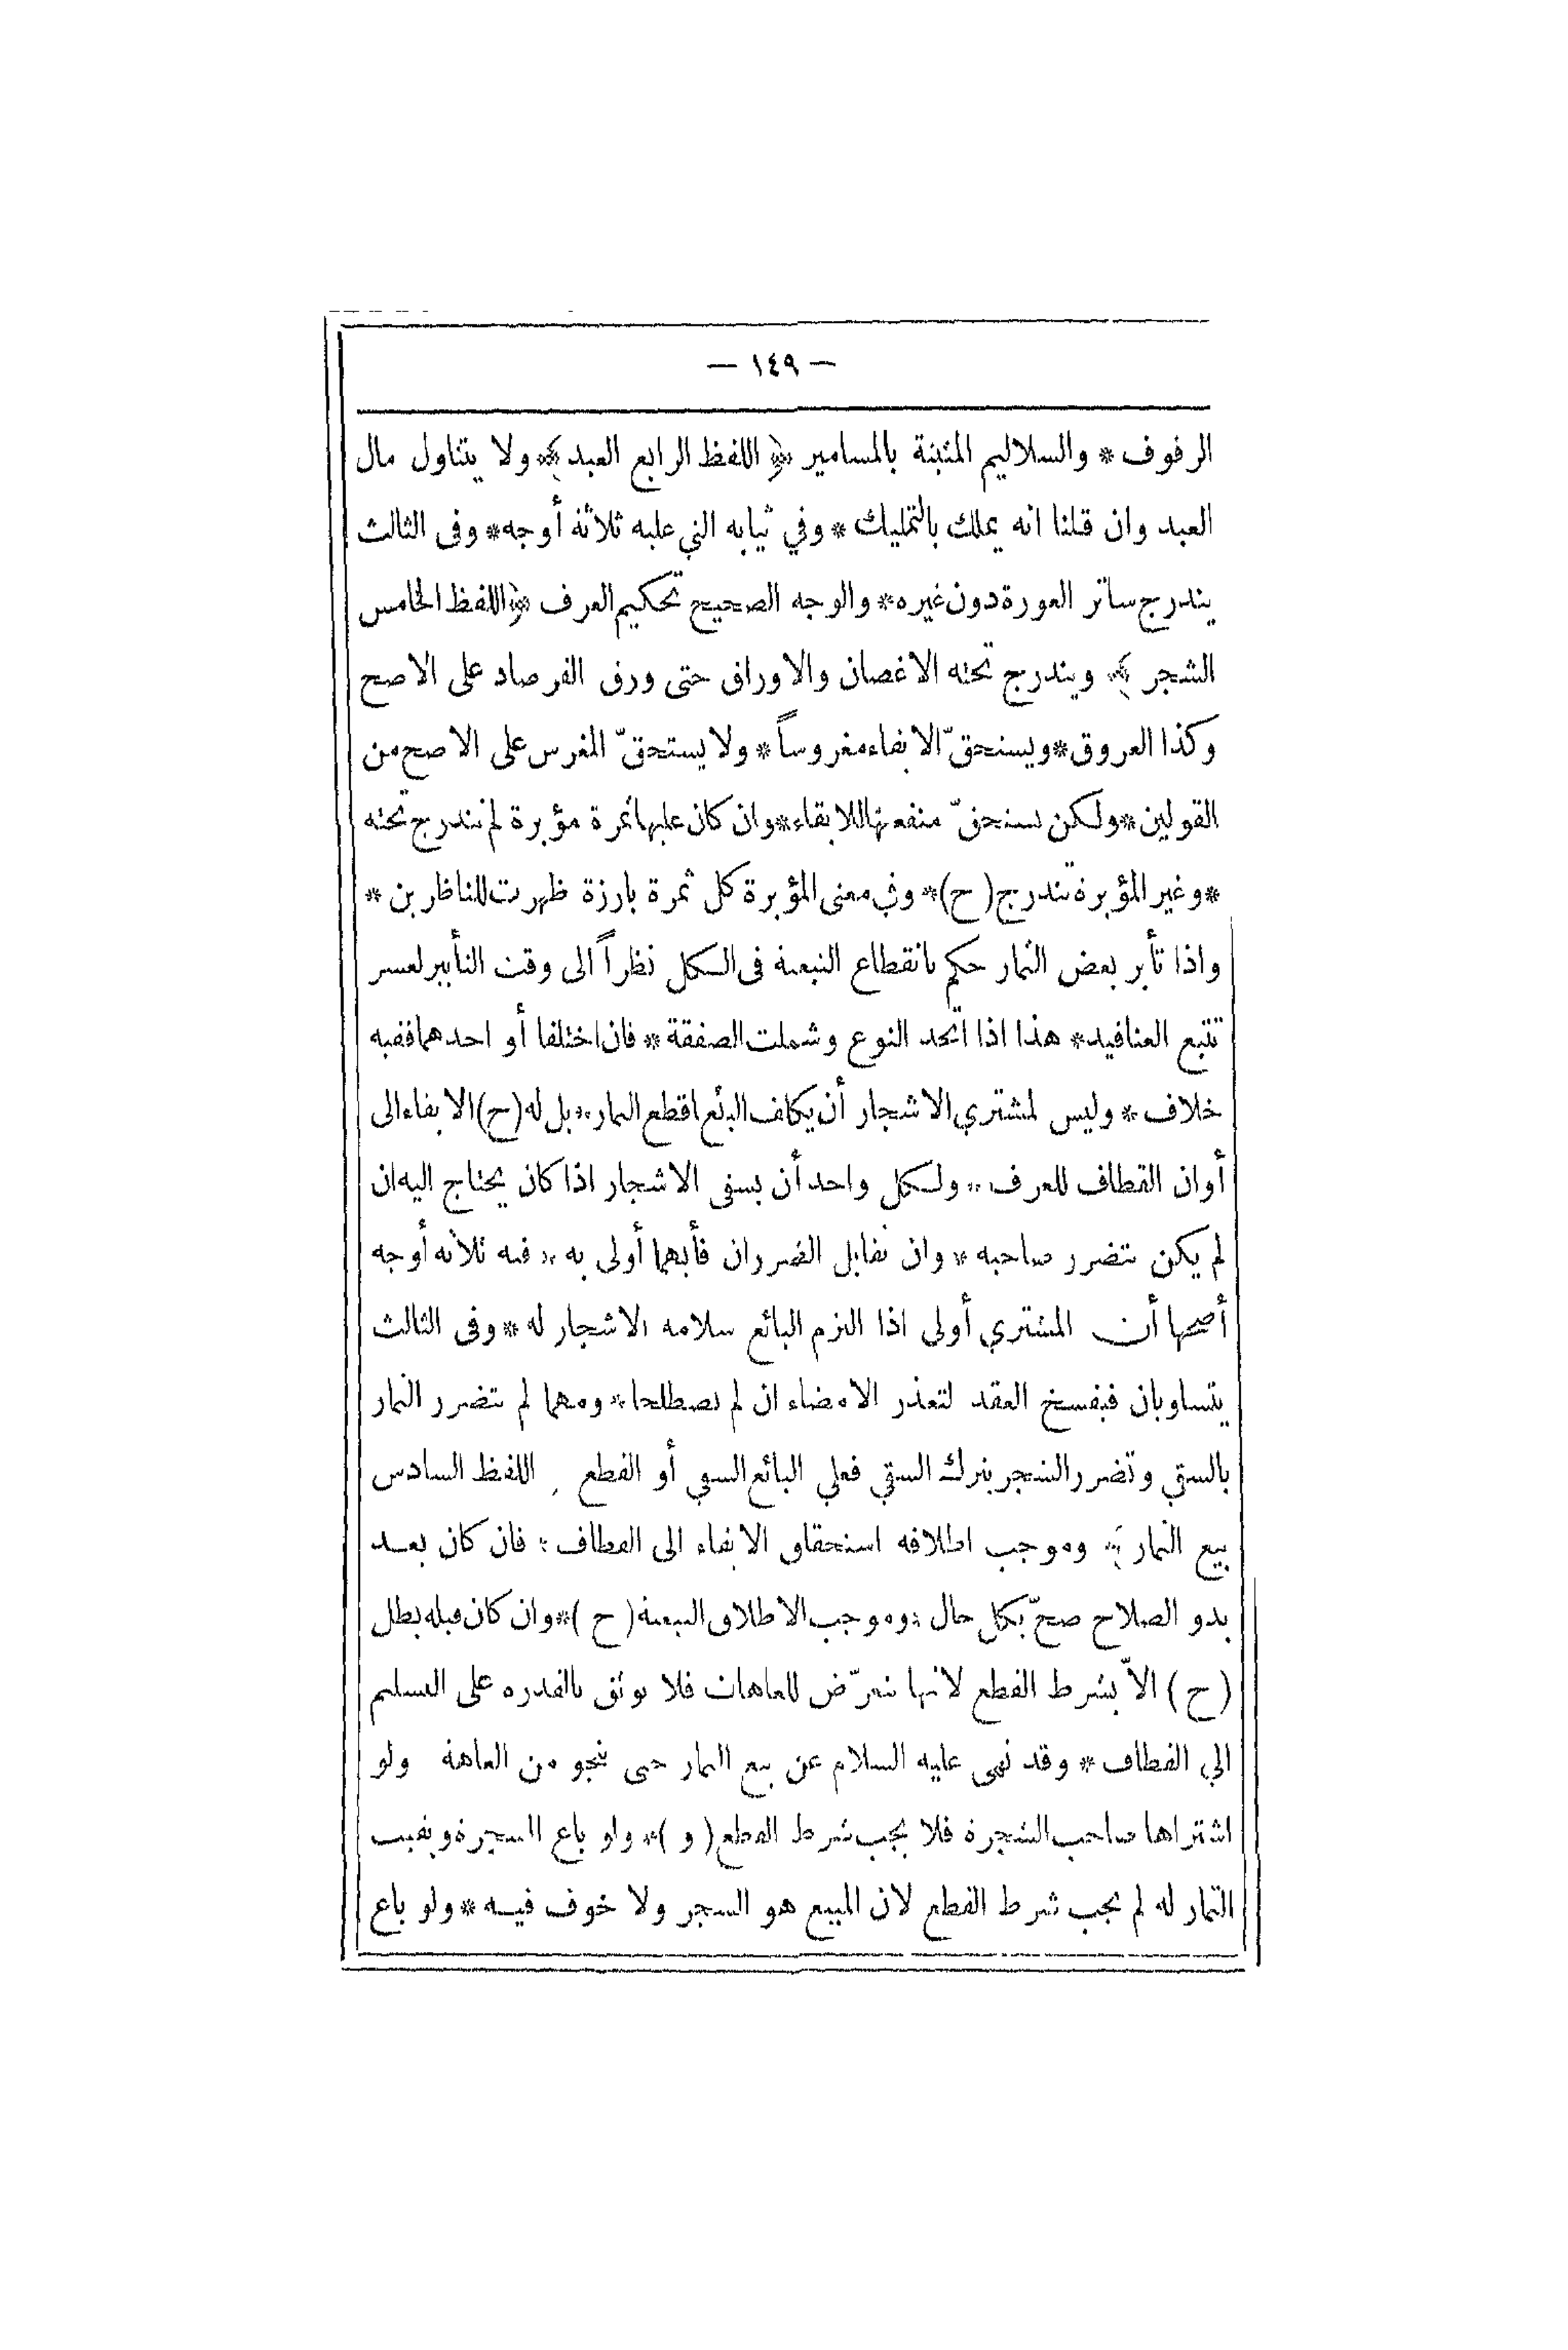 — ١٤٩ —
الرفوف * والسلاليم المثبتة بالمسامير ﴿ اللفظ الرابع العبد ﴾ ولا يتناول مال
العبد وان قلنا انه يملك بالتمليك * وفي ثيابه التي عليه ثلاثة أوجه * وفى الثالث
يندرج ساتر العورة دون غيره * والوجه الصحيح تحكيم العرف ﴿ اللفظ الخامس
الشجر ﴾ ويندرج تحته الاغصان والاوراق حتى ورق الفرصاد على الاصح
وكذا العروق * ويستحقّ الابقاء مغروساً * ولا يستحقّ المغرس على الاصح من
القولين * ولكن يستحقّ منفعتها للابقاء * وان كان عليها ثمرة مؤبرة لم تندرج تحته
* وغير المؤبرة تندرج (ح) * وفي معنى المؤبرة كل ثمرة بارزة ظهرت للناظرين *
واذا تأبر بعض الثمار حكم بانقطاع التبعية فى الكل نظراً الى وقت التأبير لعسر
تتبع العناقيد * هذا اذا اتحد النوع وشملت الصفقة * فان اختلفا أو احدهما ففيه
خلاف * وليس لمشتري الاشجار أن يكلف البائع قطع الثمار * بل له (ح) الابقاء الى
أوان القطاف للعرف * ولكل واحد أن يسقى الاشجار اذا كان يحتاج اليه ان
لم يكن يتضرر صاحبه * وان تقابل الضرران فأيهما أولى به * فيه ثلاثة أوجه
أصحها أن المشتري أولى اذا التزم البائع سلامة الاشجار له * وفى الثالث
يتساويان فيفسخ العقد لتعذر الامضاء ان لم يصطلحا * ومهما لم تتضرر الثمار
بالسقي وتضرر الشجر بترك السقي فعلي البائع السقي أو القطع اللفظ السادس
بيع الثمار ﴾ وموجب اطلاقه استحقاق الابقاء الى القطاف * فان كان بعد
بدو الصلاح صحّ بكل حال * وموجب الاطلاق التبعية (ح) * وان كان قبله بطل
(ح) الاّ بشرط القطع لانها تتعرّض للعاهات فلا يوثق بالقدرة على التسليم
الي القطاف * وقد نهى عليه السلام عن بيع الثمار حتى تنجو من العاهة ولو
اشتراها صاحب الشجرة فلا يجب شرط القطع (و) * ولو باع الشجرة وبقيت
الثمار له لم يجب شرط القطع لان المبيع هو الشجر ولا خوف فيه * ولو باع